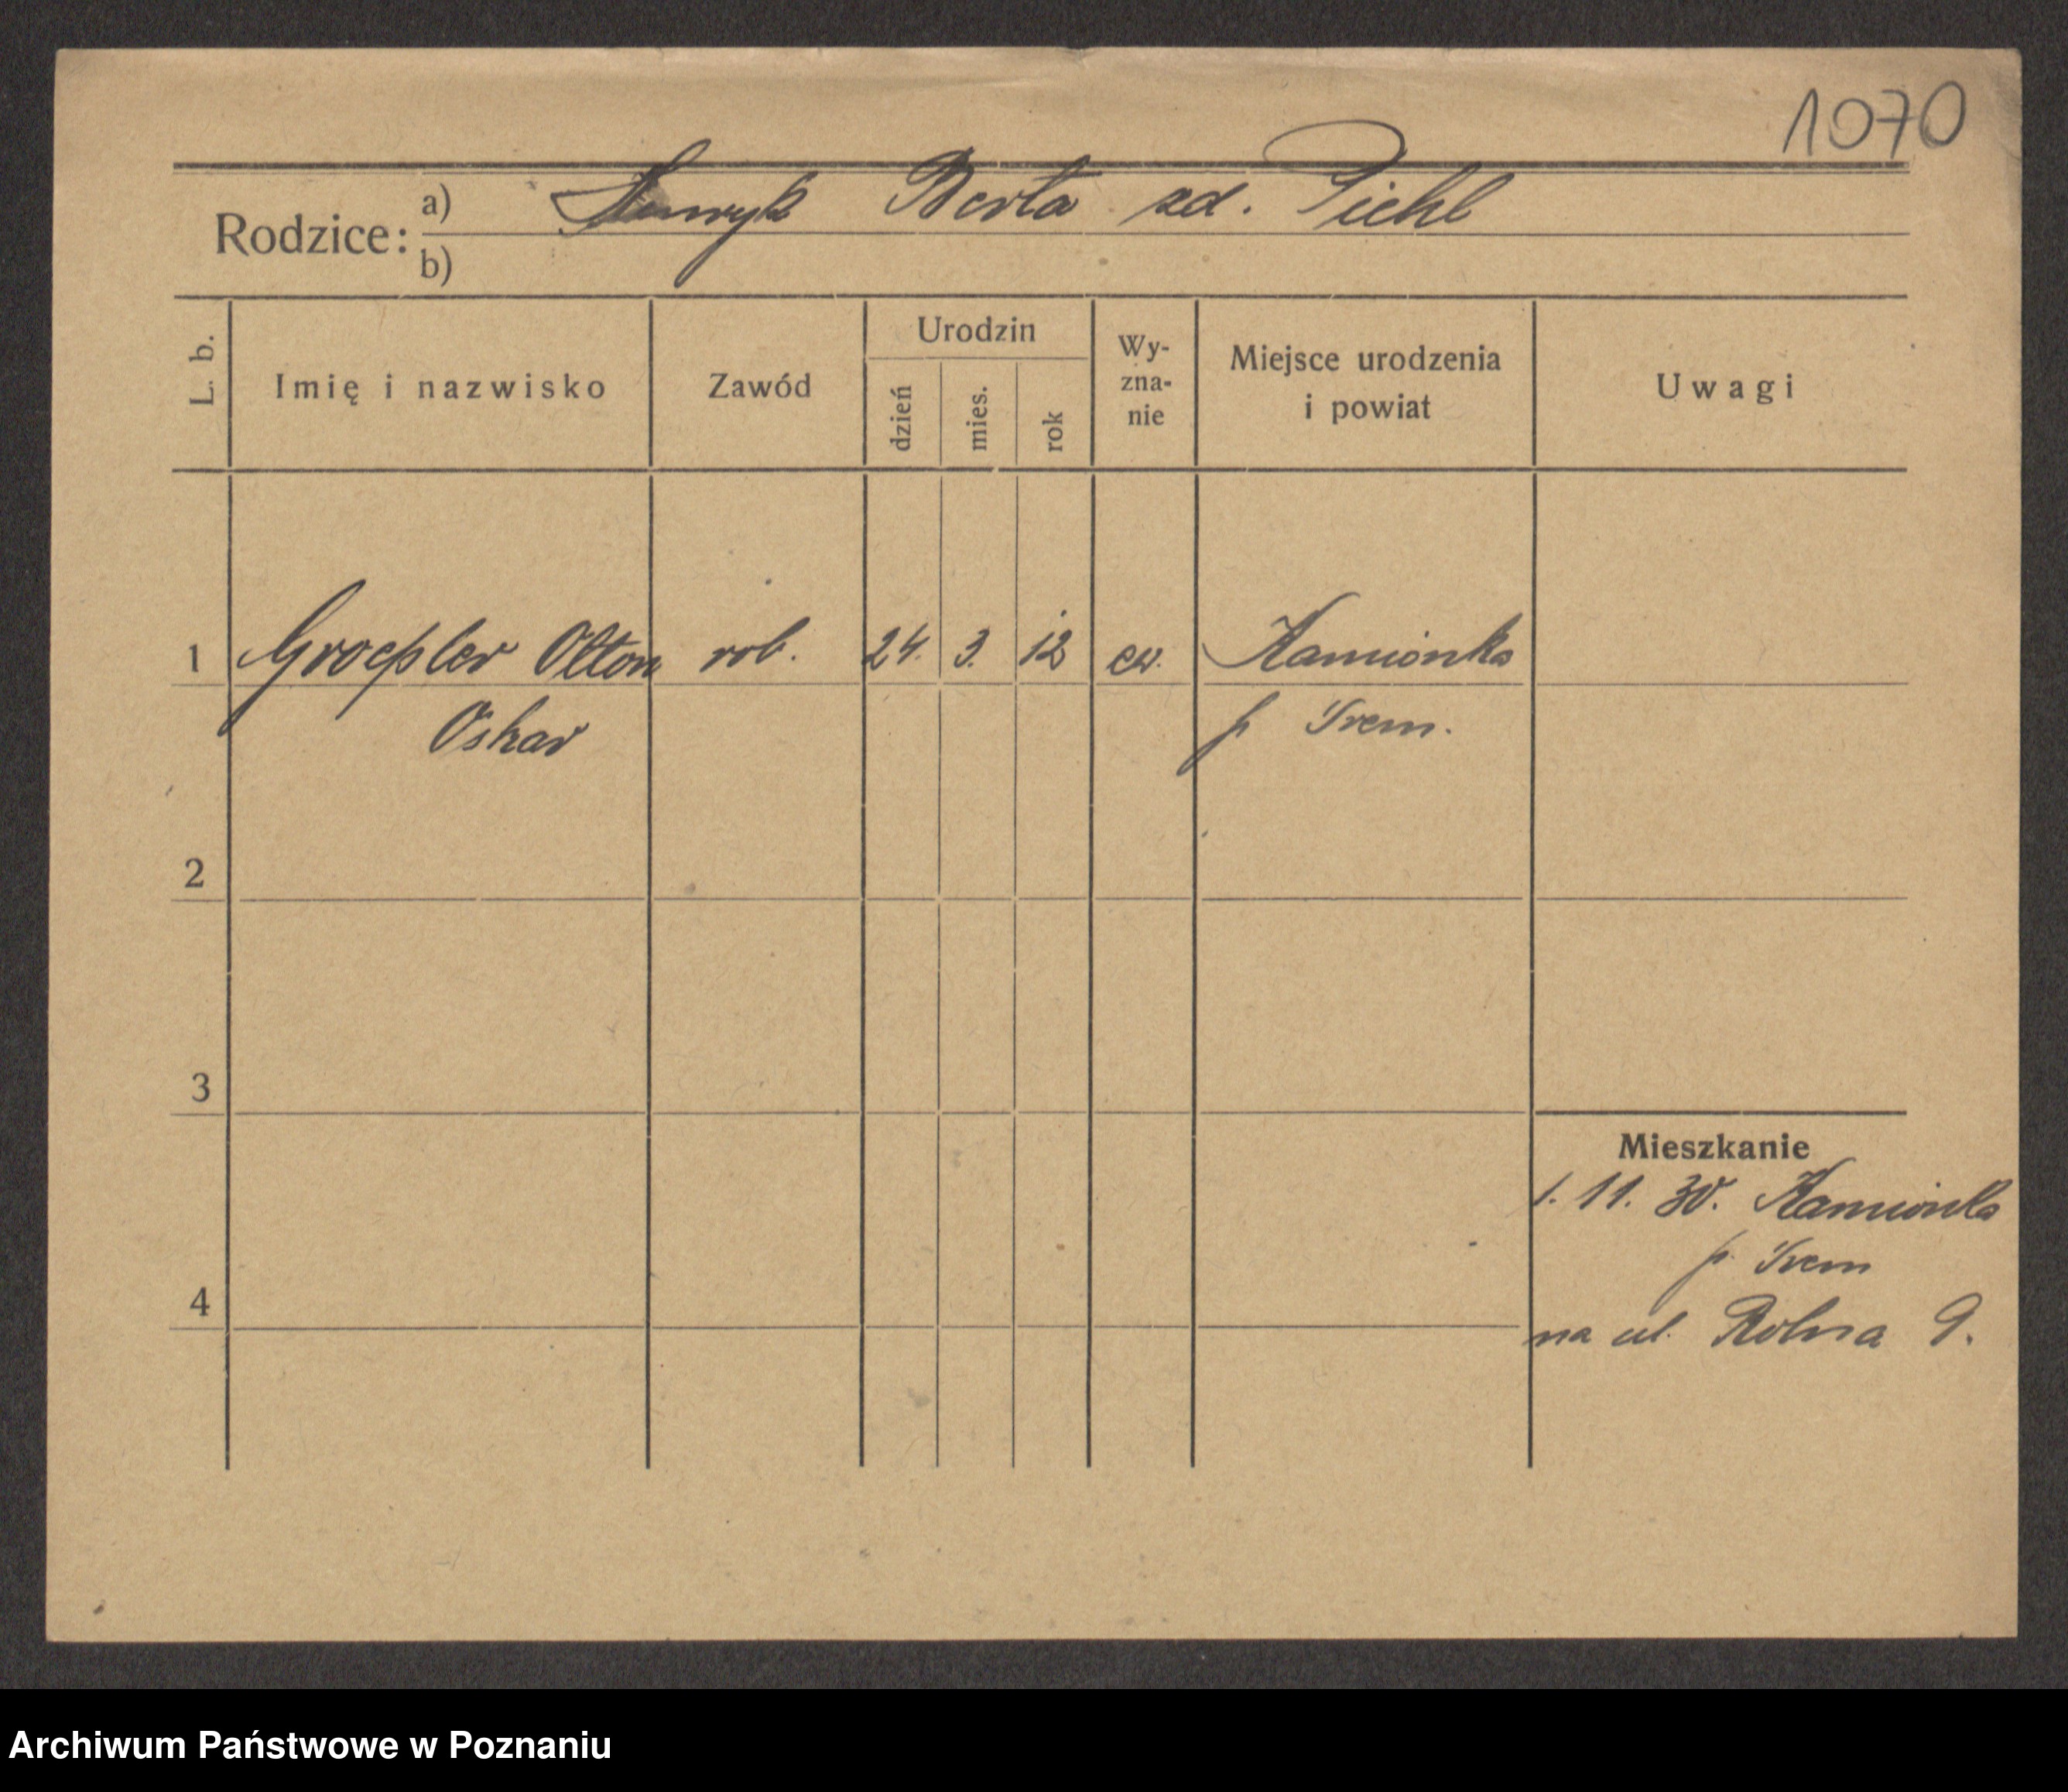 1070
Rodzice: a) Henryk Berta zd. Piehl
b)
L. b. Imię i nazwisko Zawód Urodzin dzień mies. rok Wy-zna-nie Miejsce urodzenia i powiat Uwagi
1 Groepler Otton rob. 24. 3. 12 ew. Kamionka
Oskar p Śrem.
2
3
Mieszkanie
1. 11. 30. Kamionka
p. Śrem
4
na ul. Rolna 9.
Archiwum Państwowe w Poznaniu